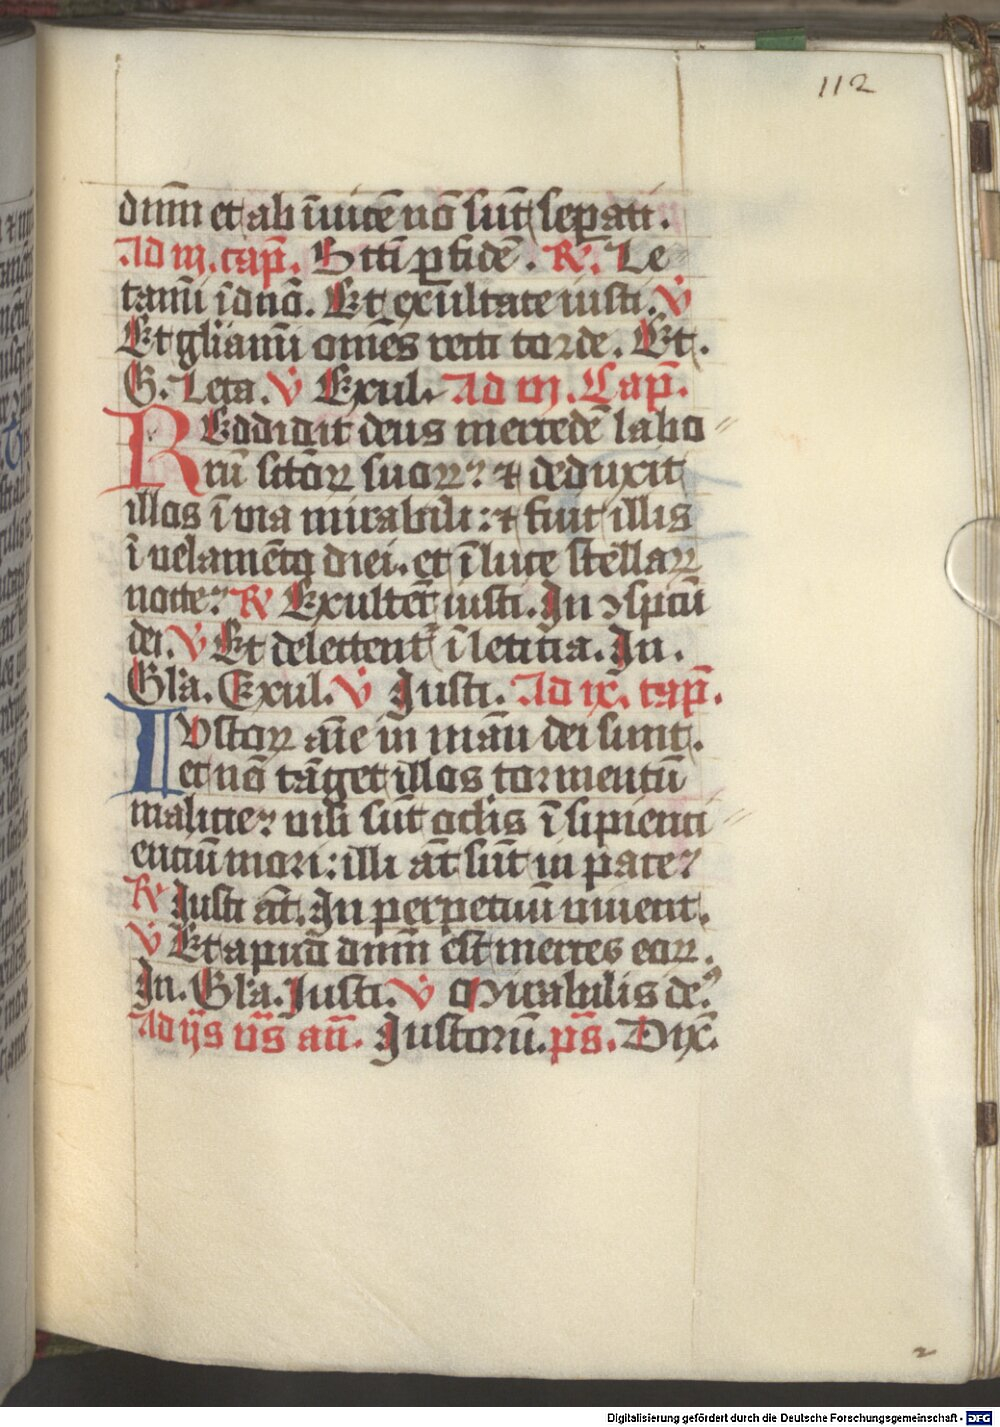 112
dnm̄ et ab īuicē nō sūt sepati.
Ad iij. cap̄. Scti p fidē. R. Le
tamī ī dnō. Et exultate iusti. V
Et gliamī omēs recti corde. Et.
G. Leta. V Exul. Ad iij. Cap̄.
REddidit deus mercedē labo
rū sctōꝝ suoꝝ: ⁊ deduxit
illos ī uia mirabili: ⁊ fuit illis
ī uelamēto diei. et ī luce stellaꝝ
nocte: R Exultēt iusti. In ꝯspcū
dei. V Et delectent ī leticia. In.
Gla. Exul. V Justi. Ad ix. cap̄.
IUstoꝝ aīe in manū dei sunt.
et nō tāget illos tormentū
malicie: uisi sūt oclis īsipienti
entiū mori: illi āt sūt in pace:
R Justi āt. In perpetuū uiuent.
V Et apud dnm̄ est merces eoꝝ.
In. Gla. Justi. V Mirabilis de.
Ad ijs us̄ an̄. Justorū. ps̄. Dix̄.
2
Digitalisierung gefördert durch die Deutsche Forschungsgemeinschaft - DFG